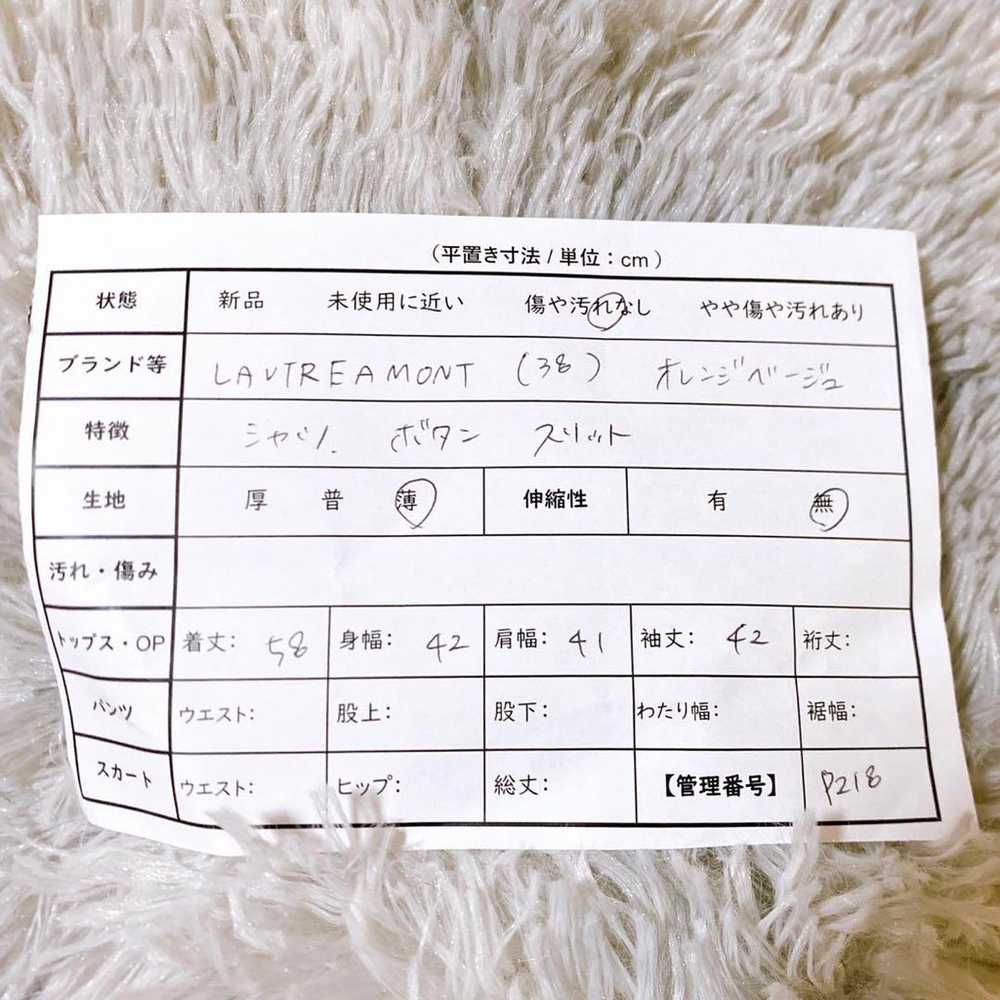 （平置き寸法 / 単位：cm ）
状態 新品 未使用に近い 傷や汚れなし やや傷や汚れあり
ブランド等 LAUTREAMONT (38) オレンジベージュ
特徴 シャツ ボタン スリット
生地 厚 普 薄 伸縮性 有 無
汚れ・傷み
トップス・OP 着丈: 58 身幅: 42 肩幅: 41 袖丈: 42 裄丈:
パンツ ウエスト: 股上: 股下: わたり幅: 裾幅:
スカート ウエスト: ヒップ: 総丈: 【管理番号】 P218